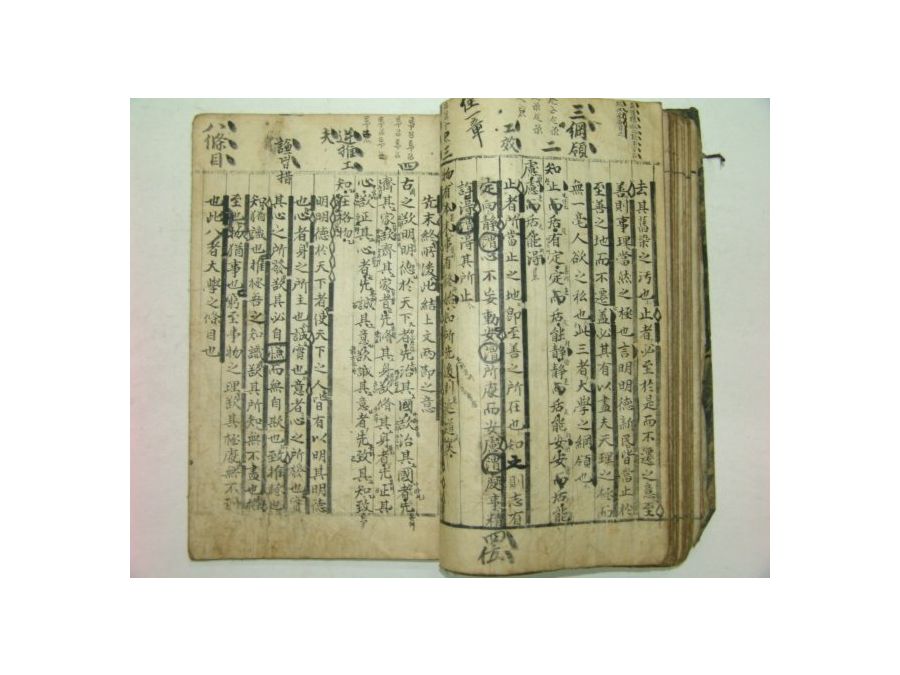 三綱領
去其舊染之汚也止者必至於是而不遷之意至
善則事理當然之極也言明明德新民皆當止於
至善之地而不遷盖必其有以盡夫天理之極而
無一毫人欲之私也此三者大學之綱領也
二
知止而后有定定而后能靜靜而后能安安而后能
慮慮而后能得
工效
止者所當止之地即至善之所在也知之則志有
定向靜謂心不妄動安謂所處而安慮謂處事精
詳得謂得其所止
章
三
物有本末事有終始知所先後則近道矣
四
先末終所後此結上文兩節之意
古之欲明明德於天下者先治其國欲治其國者先
齊其家欲齊其家者先修其身欲修其身者先正其
心欲正其心者先誠其意欲誠其意者先致其知致
知在格物
逆推工
夫
明明德於天下者使天下之人皆有以明其明德
也心者身之所主也誠實也意者心之所發也實
其心之所發欲其必自慊而無自欺也致推極也
知猶識也推極吾之知識欲其所知無不盡也格
至也物猶事也窮至事物之理欲其極處無不到
也此八者大學之條目也
八條目